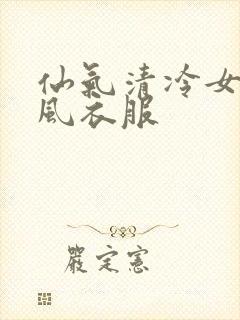 仙氣清冷女
風衣服
嚴定憲